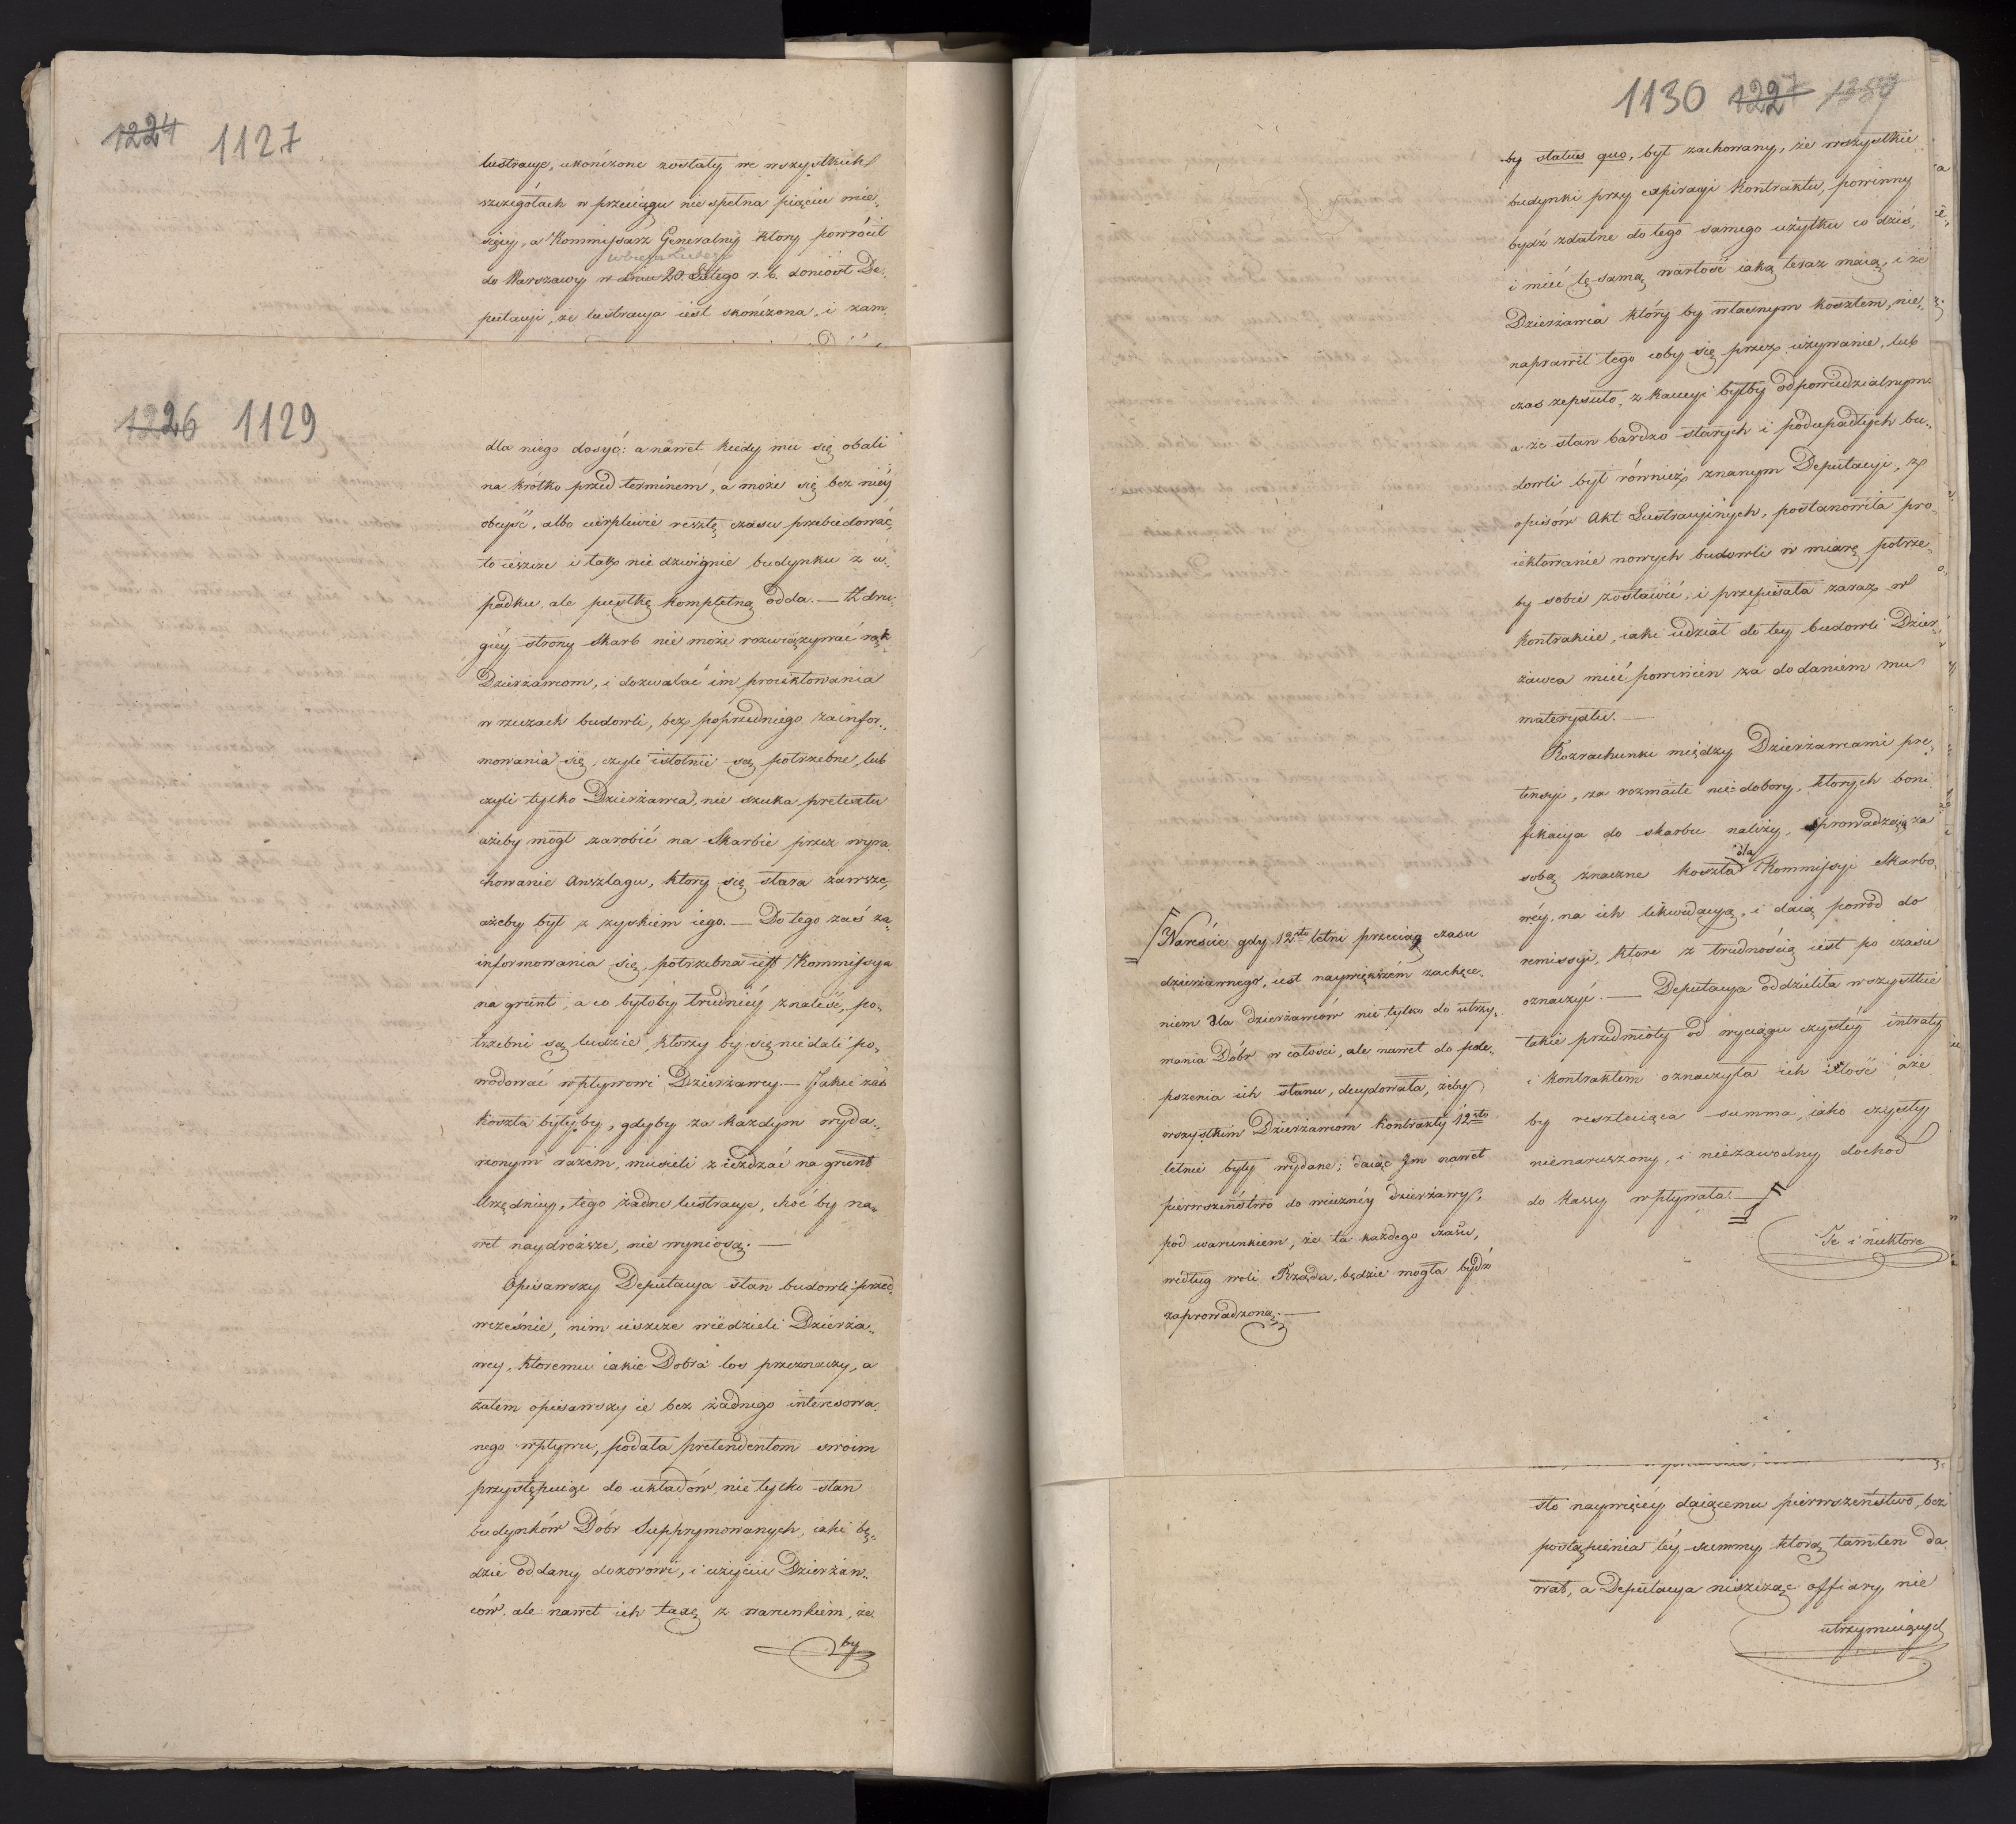 1224 1127
lustracye, ukończone zostały we wszystkich
szczegółach w przeciągu nie spełna pięciu mie„
sięcy, a Kommissarz Generalny ktory powrócił
do Warszawy w dniu 20. Lutego r. b. doniosł De„
putacyi, że lustracya iest skończona, i zam
1226 1129
dla niego dosyć: a nawet kiedy mu się obali
na krótko przed terminem, a może się bez niéy
obeyść, albo cierpliwie resztę czasu przebiedować,
to ieszcze i tak nie dzwignie budynku z u„
padku, ale pustkę kompletną odda. — Z dru„
giéy strony Skarb nie może rozwiązywać rąk
Dzierżawcom, i dozwalać im proiektowania
w rzeczach budowli, bez poprzedniego zainfor„
mowania się, czyli istotnie są potrzebne, lub
czyli tylko Dzierżawca, nie szuka pretextu
ażeby mogł zarobić na Skarbie przez wyra„
chowanie Anszlagu, ktory się stara zawsze,
ażeby był z zyskiem iego. — Do tego zaś za„
informowania się, potrzebna iest Kommissya
na grunt, a co byłoby trudniéy znaleść, po„
trzebni są ludzie, ktorzy by się nie dali po„
wodować wpływowi Dzierżawcy. — Jakie zaś
koszta były by, gdyby za każdym wyda„
rzonym razem, musieli zieżdzać na grunt
Urzędnicy, tego żadne lustracye, choć by na„
wet naydroższe, nie wyniosą. —
Opisawszy Deputacya stan budowli przed„
wcześnie, nim ieszcze wiedzieli Dzierża„
wcy, ktoremu iakie Dobra los przeznaczy, a
zatem opisawszy ie bez żadnego interesowa„
nego wpływu, podała pretendentom swoim
przystępuiąc do układów, nie tylko stan
budynków Dóbr Supprymowanych, iaki bę„
dzie oddany dozorowi, i użyciu Dzierżaw„
ców, ale nawet ich taxę z warunkiem, że
by
1130 1227
by status quo, był zachowany, że wszystkie
budynki przy expiracyi Kontraktu, powinny
bydź zdatne do tego samego użytku co dziś,
i mieć tę samą wartość iaką teraz maią, i że
Dzierżawca który by własnym kosztem, nie„
naprawił tego coby się przez używanie, lub
czas zepsuło, z kaucyi byłby odpowiedzialnym:
a że stan bardzo starych i podupadłych bu„
dowli był również znanym Deputacyi, z
opisów Akt Lustracyinych, postanowiła pro„
iektowanie nowych budowli w miarę potrze„
by sobie zostawić, i przepisała zaraz w
kontrakcie, iaki udział do tey budowli Dzier„
żawca mieć powinien za dodaniem mu
materyału. —
Rozrachunki między Dzierżawcami pre„
tensyi, za rozmaite nie=dobory, ktorych boni„
fikacya do skarbu należy, prowadzą za
sobą znaczne koszta dla Kommissyi Skarbo„
wéy, na ich likwidacyą, i daią powod do
remissyi, ktore z trudnością iest po czasie
oznaczyć. — Deputacya oddzieliła wszystkie
takie przedmioty od wyciągu czystéy intraty
i kontraktem oznaczyła ich ilość aże
by resztuiąca summa, iako czysty
nienaruszony, i niezawodny dochod
do kassy wpływała. —
Te i niektore
Nareście gdy 12sto letni przeciąg czasu
dzierżawnego, iest naywiększém zachęce„
niem dla dzierżawców nie tylko do utrzy„
mania Dóbr w całości, ale nawet do pole„
pszenia ich stanu, decydowała, żeby
wszystkim Dzierżawcom kontrakty 12sto
letnie były wydane; daiąc Jm nawet
pierwszeństwo do wieczney dzierżawy,
pod warunkiem, że ta każdego czasu,
według woli Rządu, będzie mogła bydź
zaprowadzoną. —
sto naywięcéy daiącemu pierwszeństwo, bez
postąpienia téy summy ktorą tamten da
wał, a Deputacya niszcząc offiary, nie
utrzymuiących